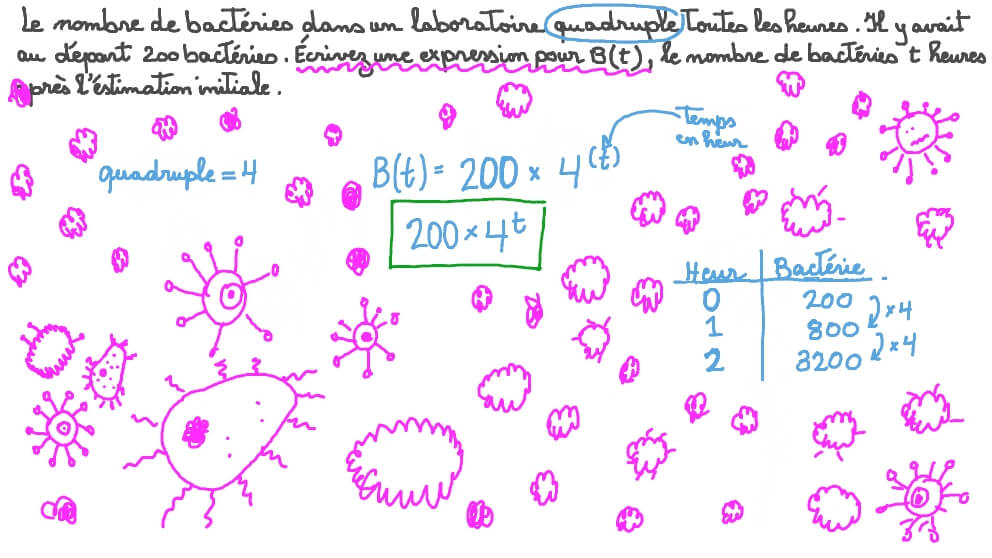 Le nombre de bactéries dans un laboratoire quadruple toutes les heures. Il y avait
au départ 200 bactéries. Écrivez une expression pour B(t), le nombre de bactéries t heures
après l'éstimation initiale.
Temps
en heur
quadruple = 4
B(t) = 200 × 4^(t)
200 × 4^t
Heur Bactérie
0 200
×4
1 800
×4
2 3200